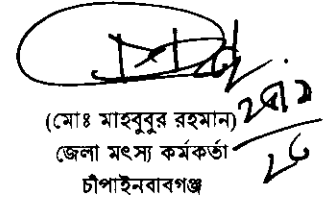 (মোঃ মাহবুবুর রহমান)
জেলা মৎস্য কর্মকর্তা
চাঁপাইনবাবগঞ্জ